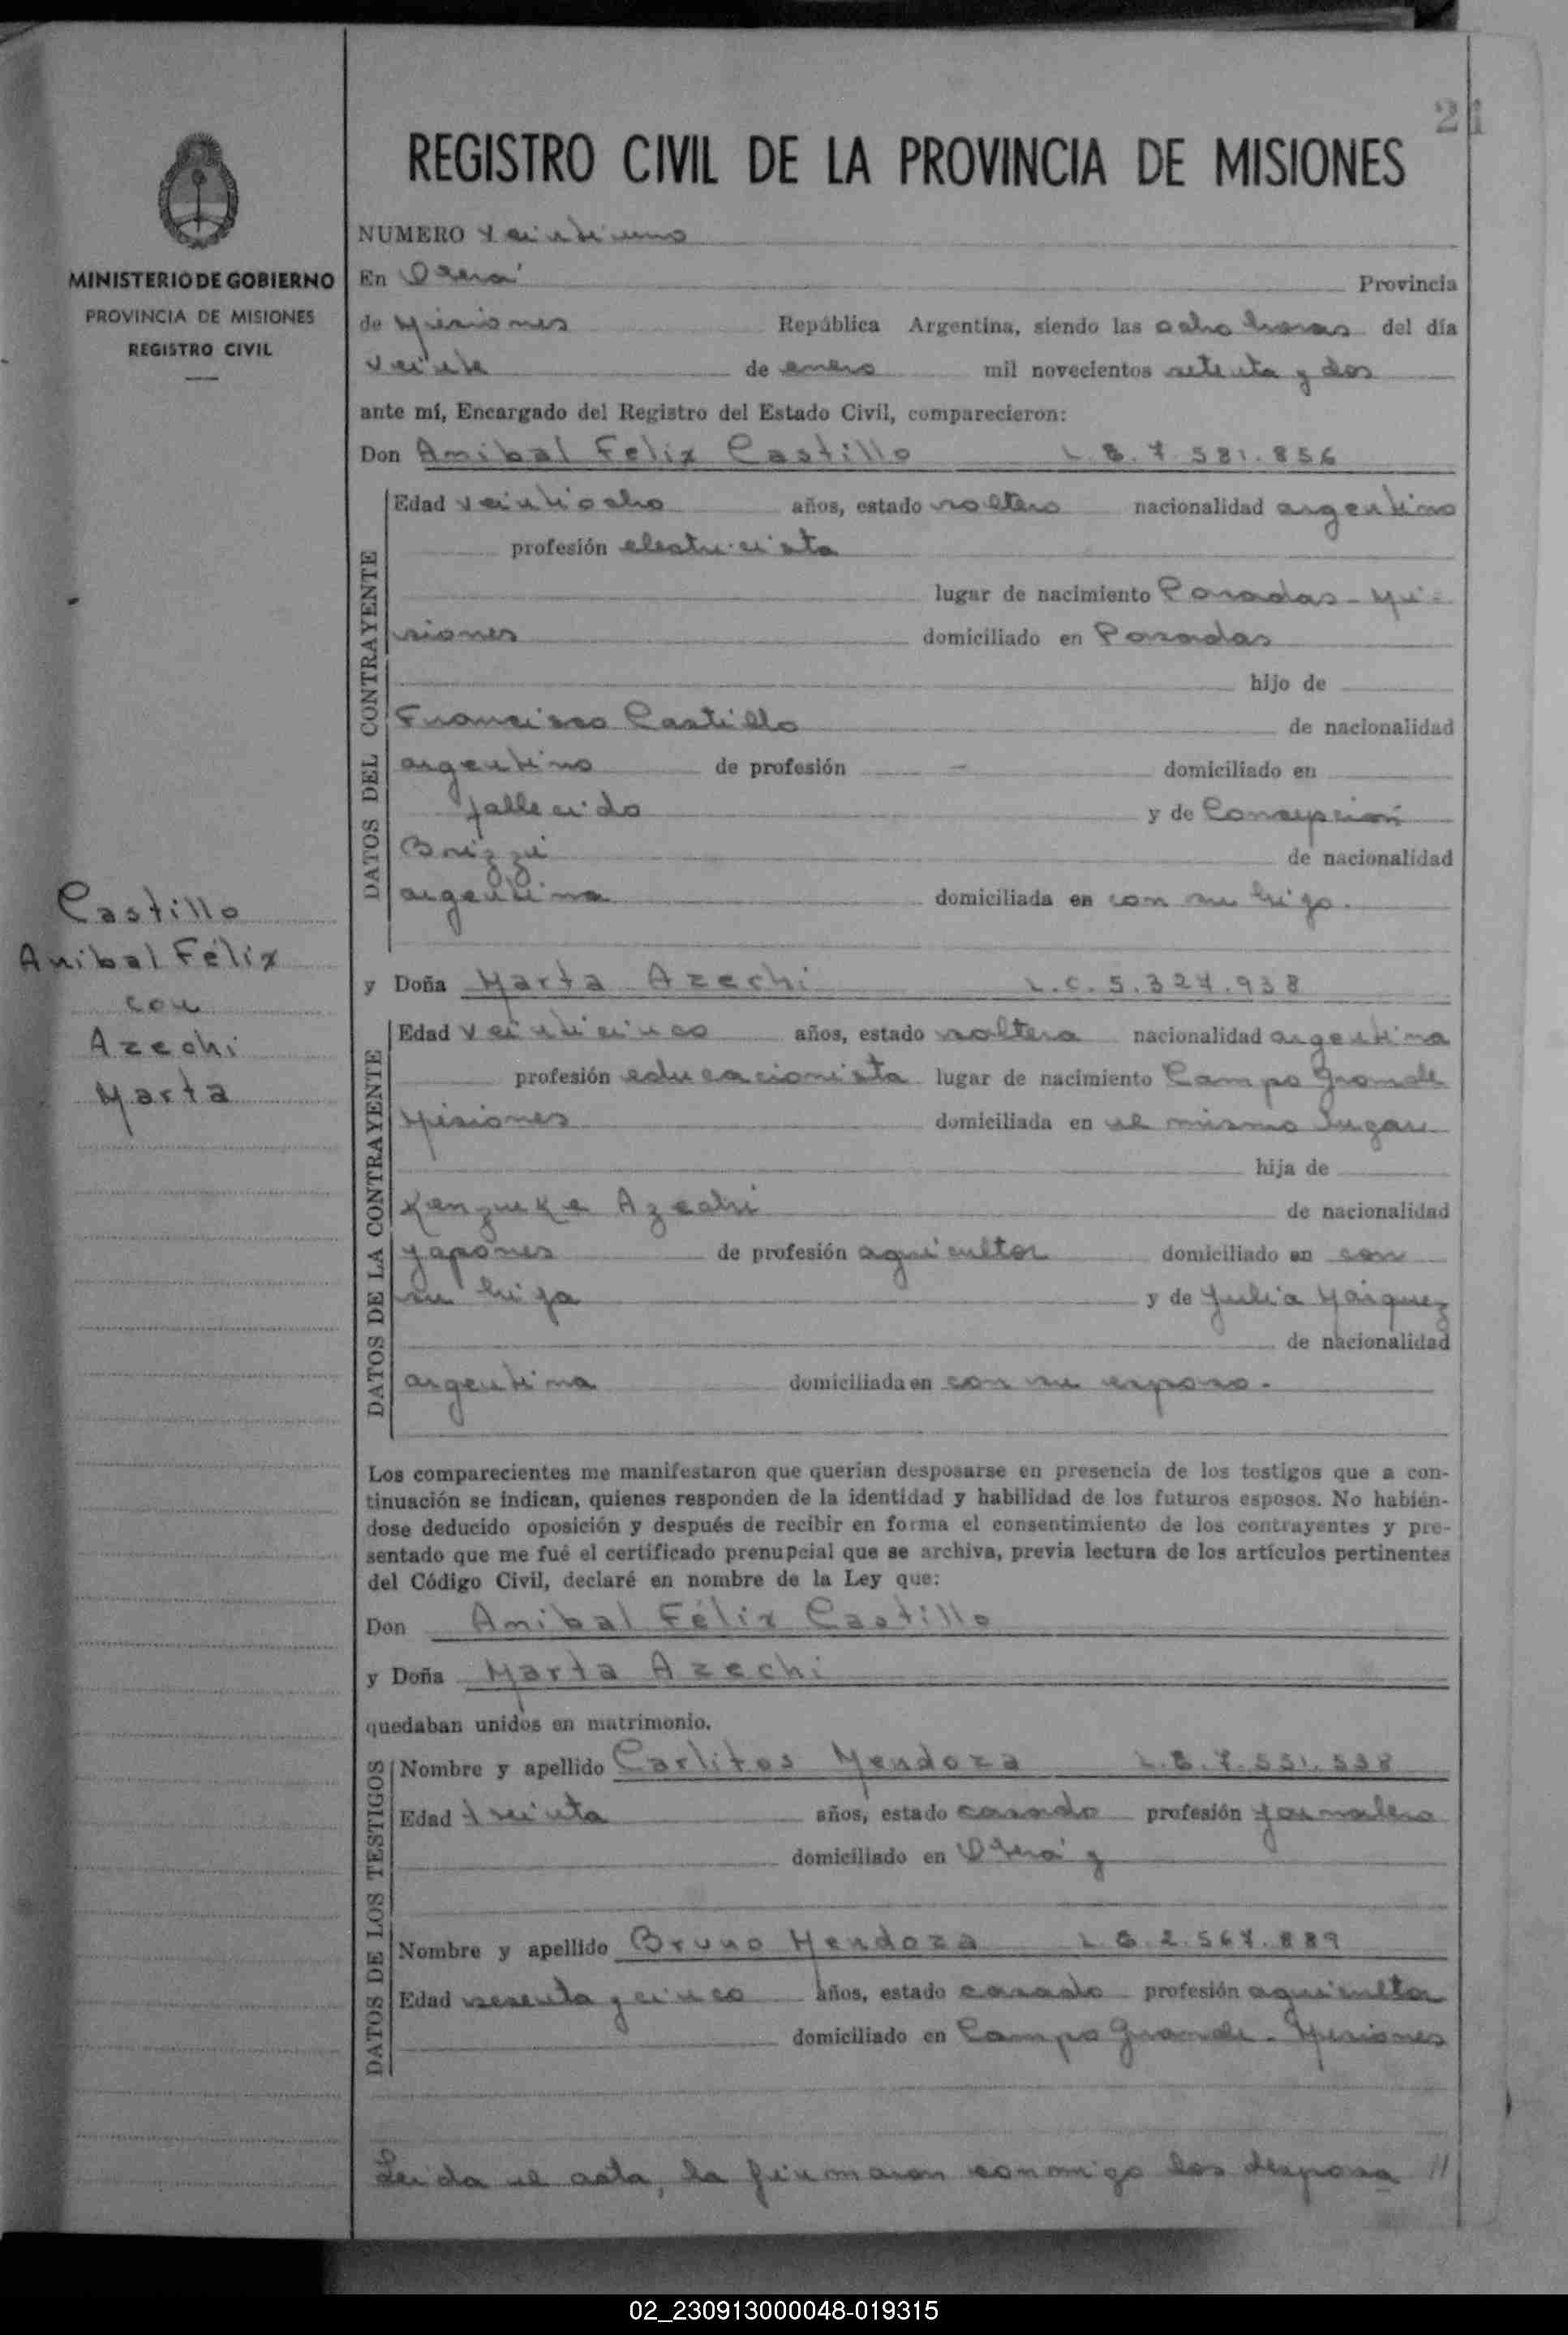 21
REGISTRO CIVIL DE LA PROVINCIA DE MISIONES
MINISTERIO DE GOBIERNO
PROVINCIA DE MISIONES
REGISTRO CIVIL
NUMERO veintiuno
En Oberá Provincia
de Misiones República Argentina, siendo las ocho horas del día
veinte de enero mil novecientos setenta y dos
ante mí, Encargado del Registro del Estado Civil, comparecieron:
Don Anibal Felix Castillo L.E. 7.581.856
DATOS DEL CONTRAYENTE
Edad veintiocho años, estado soltero nacionalidad argentino
profesión electricista
lugar de nacimiento Posadas - Mi-
siones domiciliado en Posadas
hijo de
Francisco Castillo de nacionalidad
argentino de profesión - domiciliado en
fallecido y de Concepción
Brizzi de nacionalidad
argentina domiciliada en con su hijo.
Castillo
Anibal Félix
con
Azechi
Marta
y Doña Marta Azechi L.C. 5.327.938
DATOS DE LA CONTRAYENTE
Edad veinticinco años, estado soltera nacionalidad argentina
profesión educacionista lugar de nacimiento Campo Grande
Misiones domiciliada en el mismo lugar
hija de
Kenzueke Azechi de nacionalidad
japones de profesión agricultor domiciliado en con
su hija y de Julia Márquez
de nacionalidad
argentina domiciliada en con su esposo.
Los comparecientes me manifestaron que querían desposarse en presencia de los testigos que a con-
tinuación se indican, quienes responden de la identidad y habilidad de los futuros esposos. No habién-
dose deducido oposición y después de recibir en forma el consentimiento de los contrayentes y pre-
sentado que me fué el certificado prenupcial que se archiva, previa lectura de los artículos pertinentes
del Código Civil, declaré en nombre de la Ley que:
Don Anibal Félix Castillo
y Doña Marta Azechi
quedaban unidos en matrimonio.
DATOS DE LOS TESTIGOS
Nombre y apellido Carlitos Mendoza L.E. 7.551.538
Edad treinta años, estado casado profesión jornalero
domiciliado en Oberá y
Nombre y apellido Bruno Mendoza L.E. 2.567.889
Edad sesenta y cinco años, estado casado profesión agricultor
domiciliado en Campo Grande - Misiones
Leida el acta, la firmaron conmigo los desposa //
02_230913000048-019315